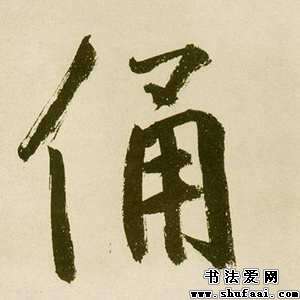 俑
书法爱网
www.shufaai.com